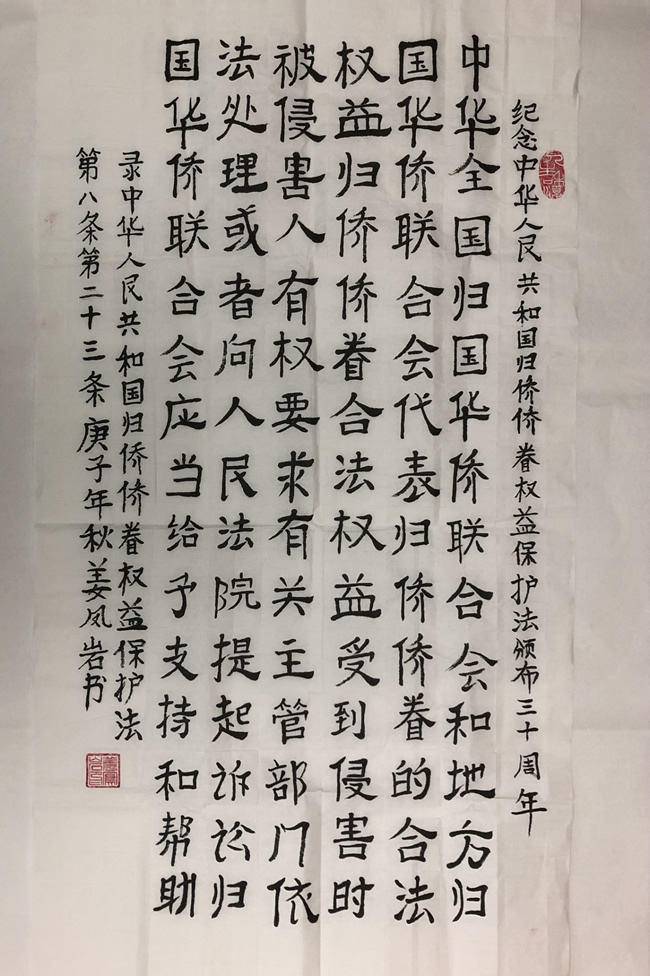 纪念中华人民共和国归侨侨眷权益保护法颁布三十周年
中华全国归国华侨联合会和地方归
国华侨联合会代表归侨侨眷的合法
权益归侨侨眷合法权益受到侵害时
被侵害人有权要求有关主管部门依
法处理或者向人民法院提起诉讼归
国华侨联合会应当给予支持和帮助
录中华人民共和国归侨侨眷权益保护法
第八条第二十三条庚子年秋姜凤岩书